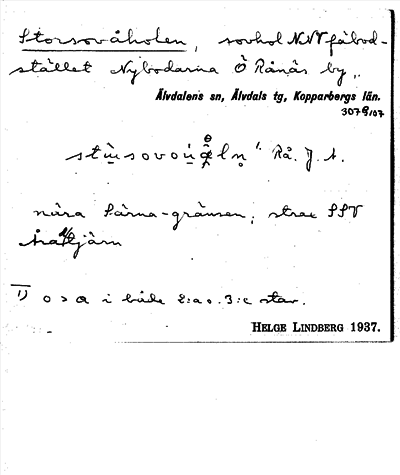 Storsovåholen, sovhol NNV fäbod-
stället Nybodarna Ö Rånäs by,.
Älvdalens sn, Älvdals tg, Kopparbergs län.
3078/107
Rå. J. A.
nära Särna-gränsen; strax SSV
tjärn
1) o > a i både 2:a o. 3:e stav.
HELGE LINDBERG 1937.